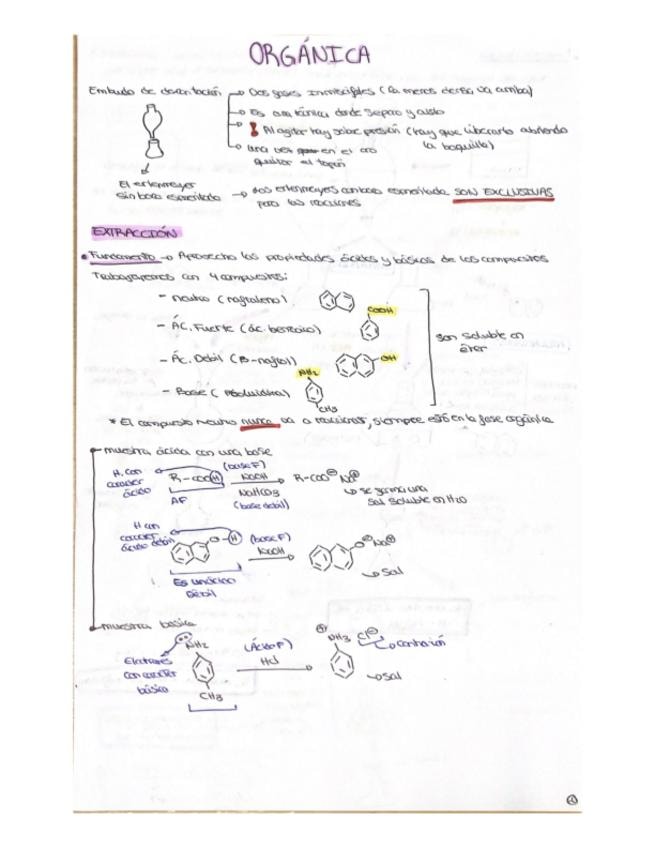 ORGÁNICA
Embudo de decantación → Dos fases inmiscibles (la menos densa va arriba)
→ Es una técnica donde separo y aislo
→ ! Al agitar hay sobre presión (hay que liberarla abriendo
la boquilla)
→ una vez en el aro
quitar el tapón
El erlenmeyer
sin boca esmerilada
→ Los erlenmeyers con boca esmerilada SON EXCLUSIVAS
para las reacciones
EXTRACCIÓN
• Fundamento → Aprovecho las propiedades ácidas y básicas de los compuestos
Trabajaremos con 4 compuestos:
- neutro (naftaleno)
- ÁC. Fuerte (ác. benzoico)
COOH
- Ác. Débil (β-naftol)
OH
- Base (
NH₂
CH₃
son soluble en
éter
* El compuesto neutro nunca va a reaccionar, siempre está en la fase orgánica
muestra ácida con una base
H. con
caracter
ácido
R-COOH
AF
(base F)
NaOH
NaHCO3
(base débil)
R-COO⊖ Na⊕
↳ se forma una
sal soluble en H₂O
H con
caracter
ácido débil
O-H
(base F)
NaOH
O⊖ Na⊕
↳ Sal
Es un ácido
Débil
muestra básica
Electrones
con caracter
básico
NH₂
CH₃
(Ácido F)
HCl
⊕
NH₃ Cl⊖
→ contraión
↳ Sal